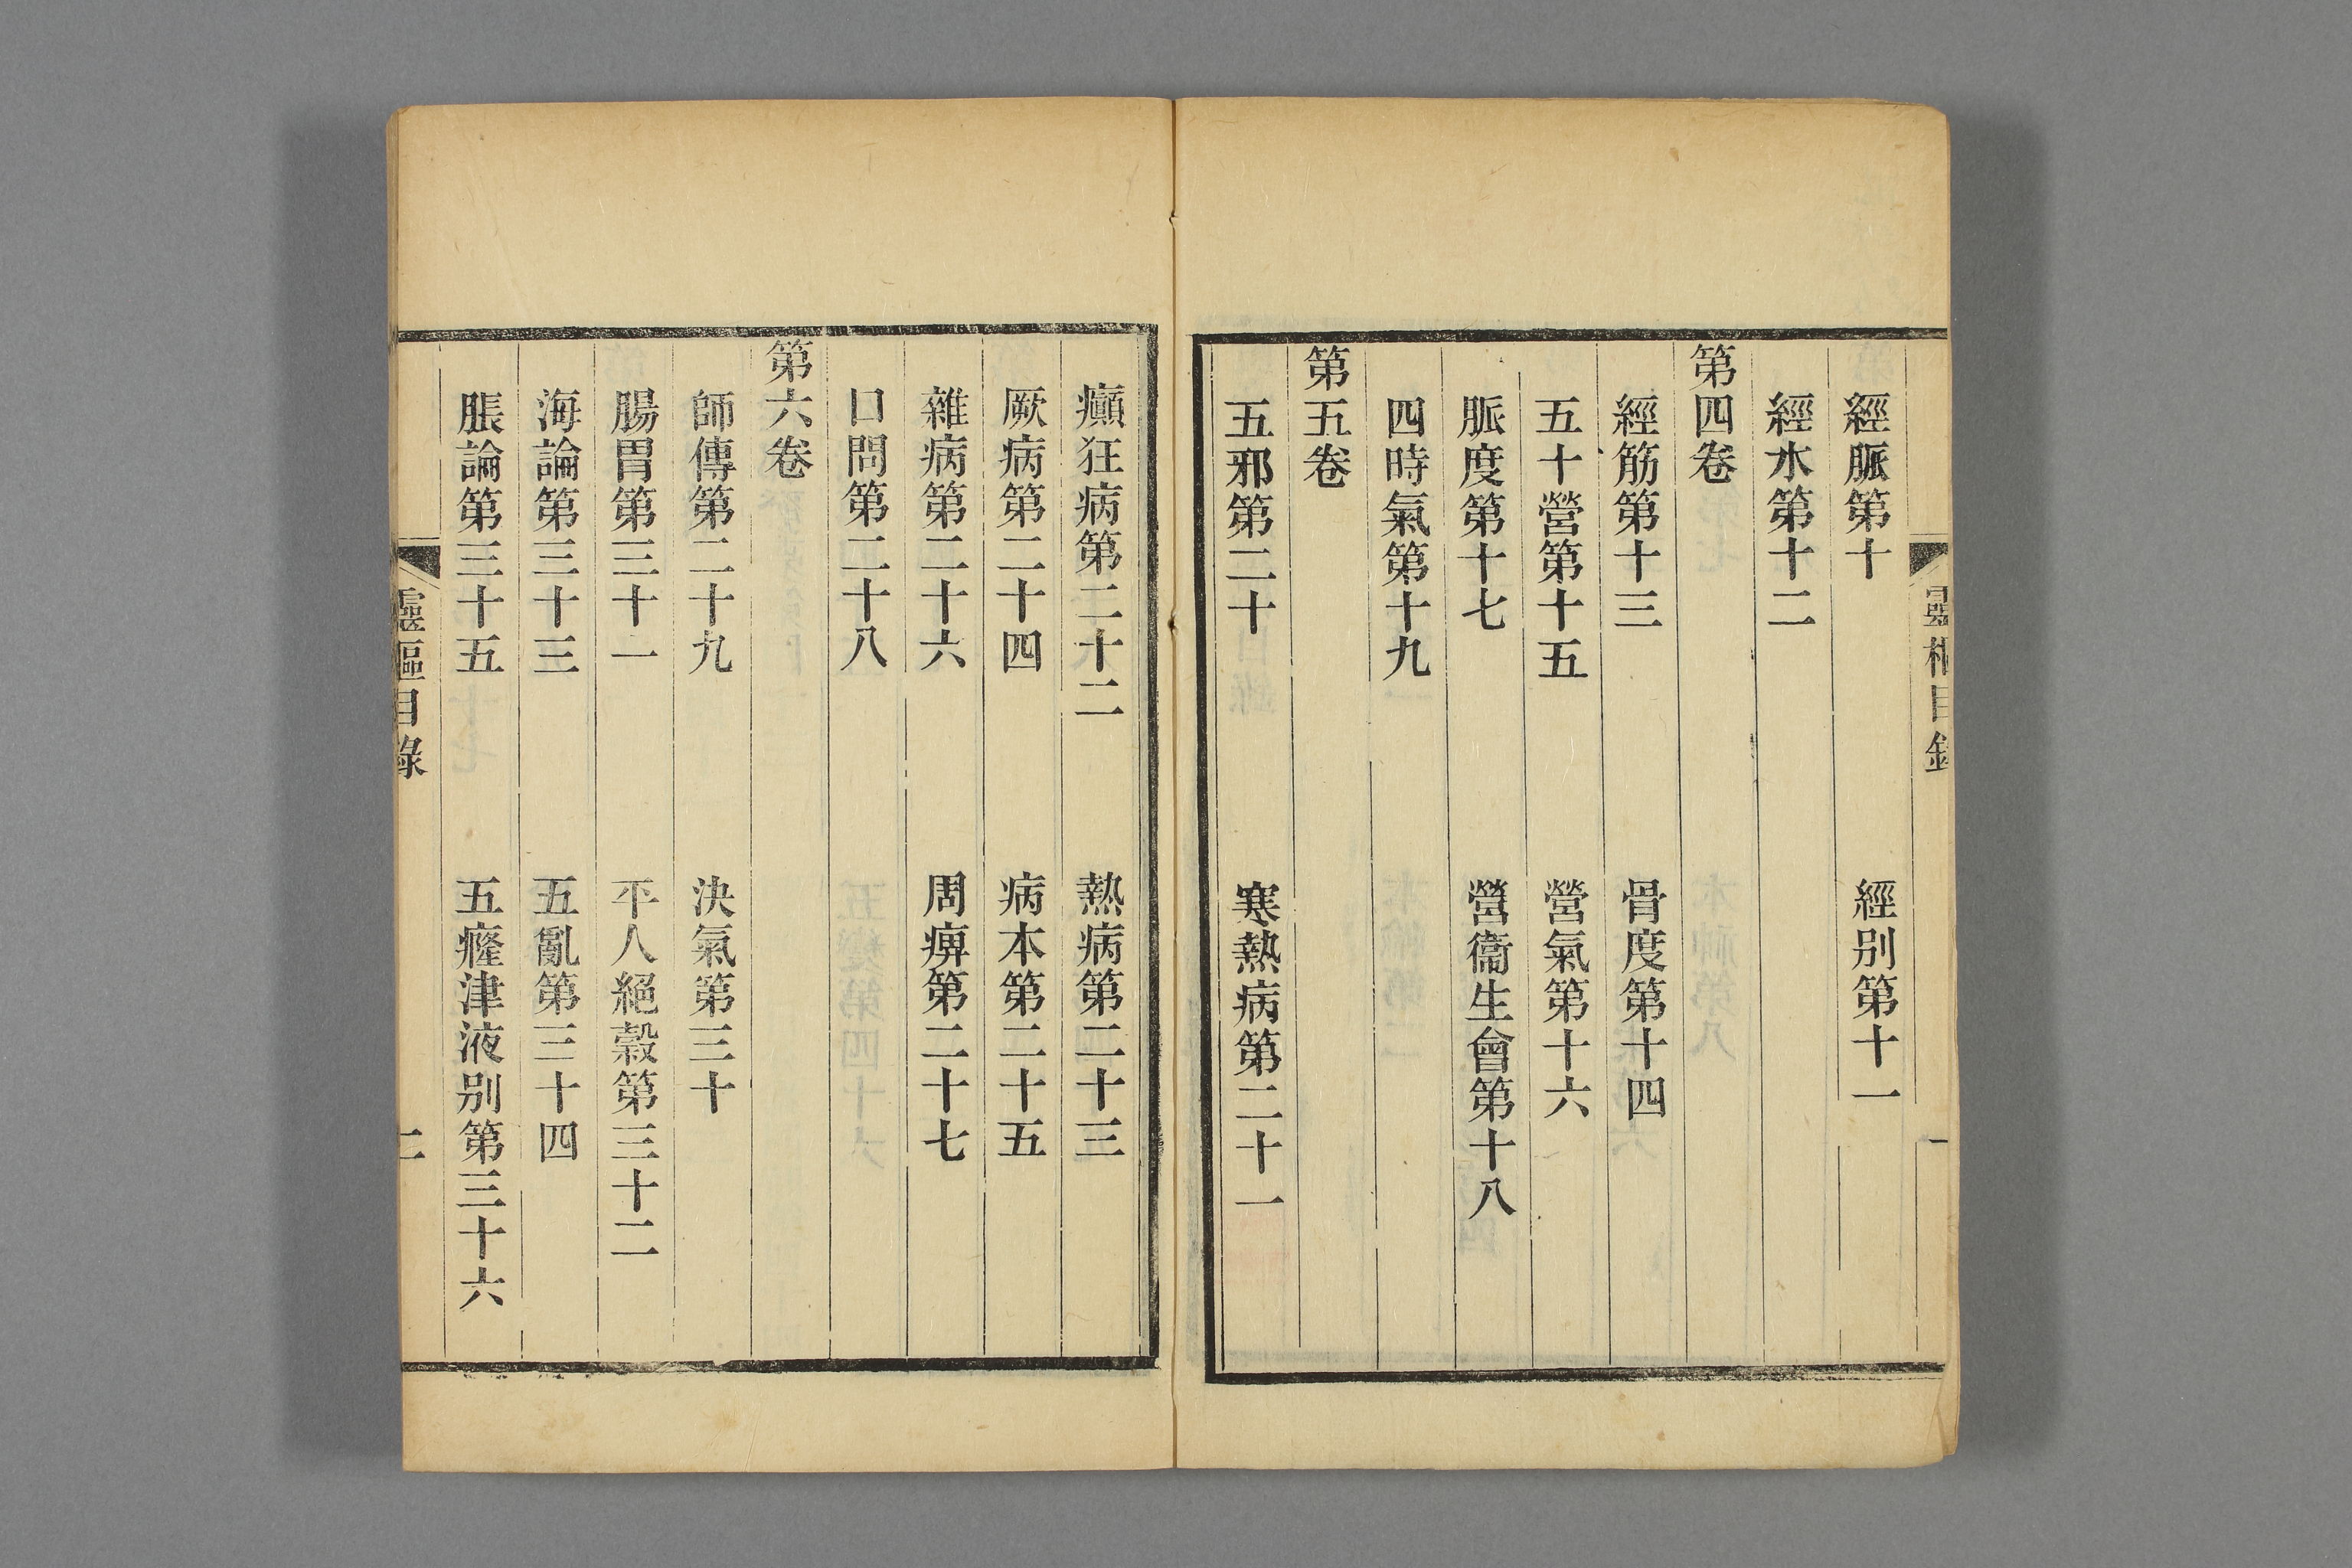 靈樞目錄 一
經脈第十 經别第十一
經水第十二
第四卷
經筋第十三 骨度第十四
五十營第十五 營氣第十六
脈度第十七 營衞生會第十八
四時氣第十九
第五卷
五邪第二十 寒熱病第二十一
癲狂病第二十二 熱病第二十三
厥病第二十四 病本第二十五
雜病第二十六 周痹第二十七
口問第二十八
第六卷
師傳第二十九 決氣第三十
腸胃第三十一 平人絕穀第三十二
海論第三十三 五亂第三十四
脹論第三十五 五癃津液别第三十六
靈樞目錄 二